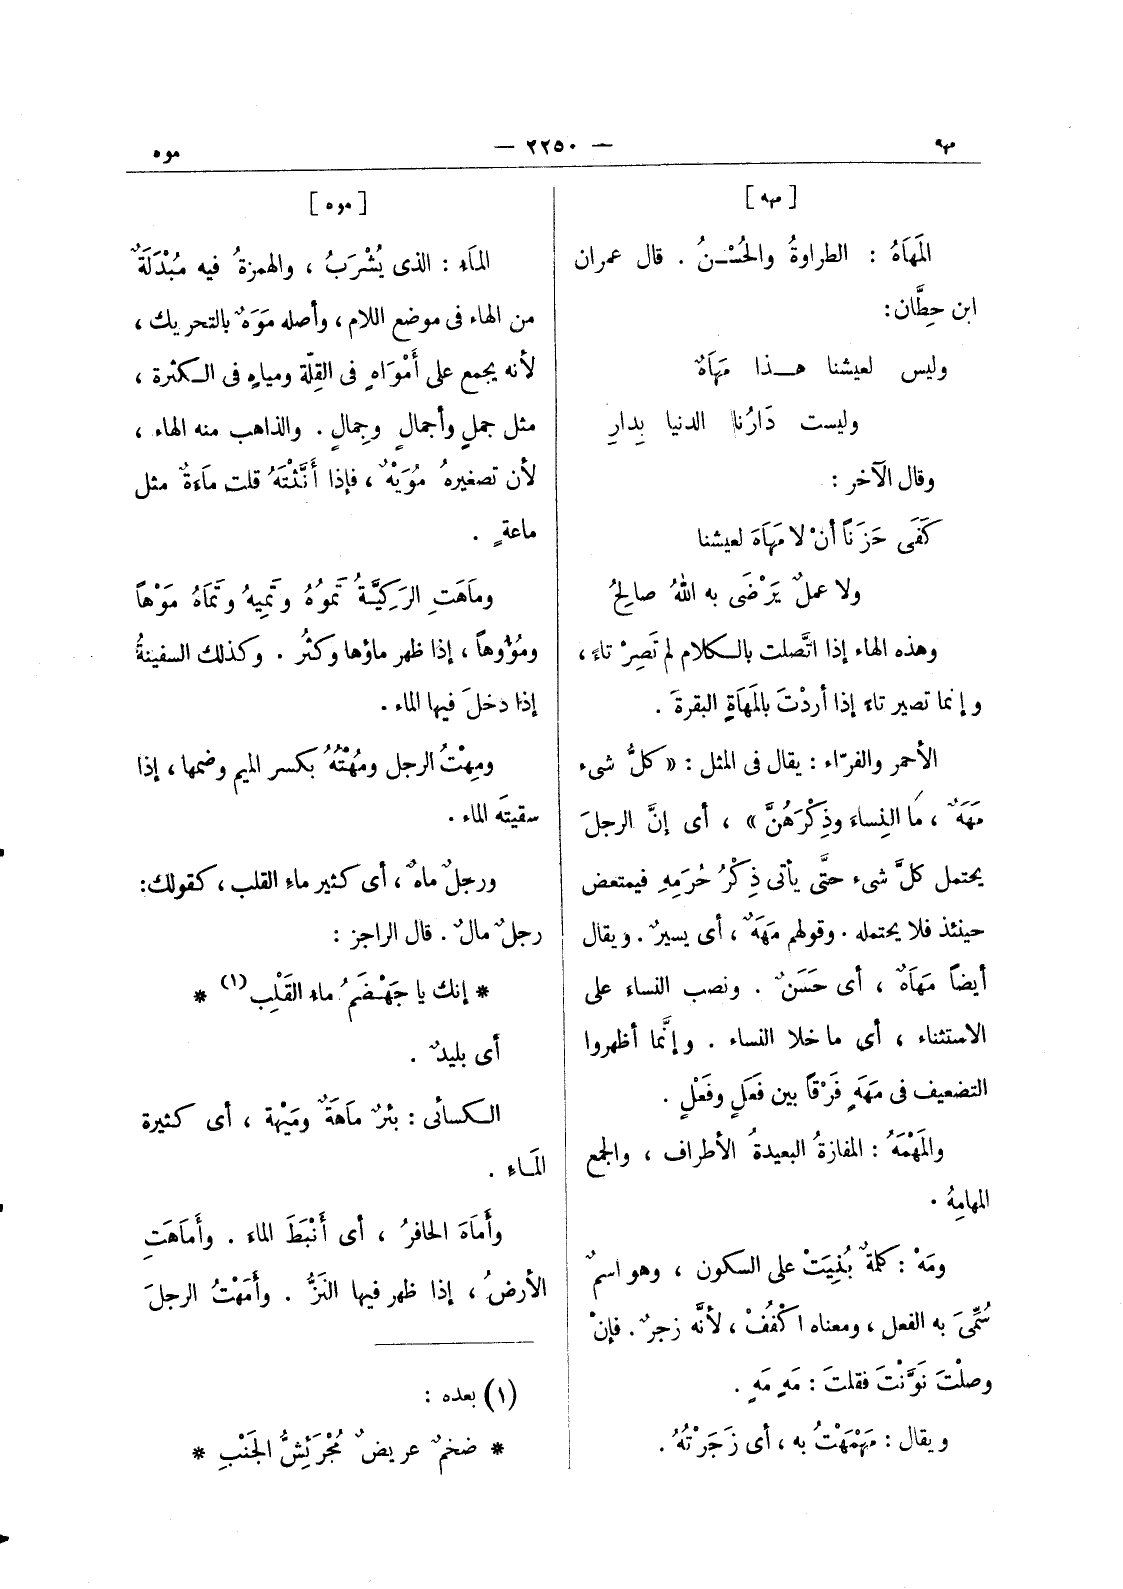 مهه
— ٢٢٥٠ —
موه
[ مهه ]
المَهَاهُ : الطراوةُ والحُسْنُ . قال عمران
ابن حِطَّان:
وليس لعيشنا هذا مَهَاهٌ
وليست دَارُنا الدنيا بِدارِ
وقال الآخر :
كَفَى حَزَنَاً أنْ لا مَهَاهَ لعيشنا
ولا عملٌ يَرْضَى به اللهُ صالِحُ
وهذه الهاء إذا اتَّصلت بالكلام لم تَصِرْ تاءً ،
وإنما تصير تاءً إذا أردْتَ بالمَهَاةِ البقرةَ .
الأحمر والفرّاء : يقال فى المثل : « كلُّ شىء
مَهَهٌ ، مَا النِساءَ وذِكْرَهُنَّ » ، أى إنَّ الرجلَ
يحتمل كلَّ شىء حتَّى يأتى ذِكْرُ حُرَمِهِ فيمتعض
حينئذ فلا يحتمله . وقولهم مَهَهٌ ، أى يسيرٌ . ويقال
أيضاً مَهَاهٌ ، أى حَسَنٌ . ونصب النساء على
الاستثناء ، أى ما خلا النساء . وإنَّما أظهروا
التضعيف فى مَهَهٍ فَرْقاً بين فَعَلٍ وفَعْلٍ .
والمَهْمَهُ : المفازةُ البعيدةُ الأطراف ، والجمع
المهامِهُ .
ومَهْ : كلمةٌ بُنِيَتْ على السكون ، وهو اسمٌ
سُمِّىَ به الفعل ، ومعناه اكْفُفْ ، لأنَّه زجرٌ . فإنْ
وصلْتَ نَوَّنْتَ فقلتَ : مَهٍ مَهٍ .
ويقال : مَهْمَهْتُ به ، أى زَجَرْتُهُ .
[ موه ]
المَاء : الذى يُشْرَبُ ، والهمزةُ فيه مُبْدَلَةٌ
من الهاء فى موضع اللام ، وأصله مَوَهٌ بالتحريك ،
لأنه يجمع على أَمْوَاهٍ فى القِلّة ومياهٍ فى الكثرة ،
مثل جملٍ وأجمالٍ وجِمالٍ . والذاهب منه الهاء ،
لأن تصغيرهُ مُوَيْهٌ ، فإذا أَنَّثْتَهُ قلت مَاءَةٌ مثل
ماعةٍ .
ومَاهَتِ الرَكِيَّةُ تَمُوهُ وتَمِيهُ وتَمَاهُ مَوْهاً
ومُؤُوهاً ، إذا ظهر ماؤها وكثُر . وكذلك السفينةُ
إذا دخلَ فيها الماء .
ومِهْتُ الرجل ومُهْتُهُ بكسر الميم وضمها ، إذا
سقيتَه الماء .
ورجلٌ ماهٌ ، أى كثير ماءِ القلب ، كقولك:
رجلٌ مالٌ . قال الراجز :
* إنك يا جَهْضَمُ ماهُ القَلْبِ (١) *
أى بليدٌ .
الكسائى : بئرٌ مَاهَةٌ ومَيْهة ، أى كثيرة
المَاءِ .
وأَمَاهَ الحافرُ ، أى أَنْبَطَ الماءَ . وأَمَاهَتِ
الأرضُ ، إذا ظهر فيها النَزُّ . وأَمَهْتُ الرجلَ
(١) بعده :
* ضخمٌ عريضٌ مُجْرَئِشُّ الجَنْبِ *